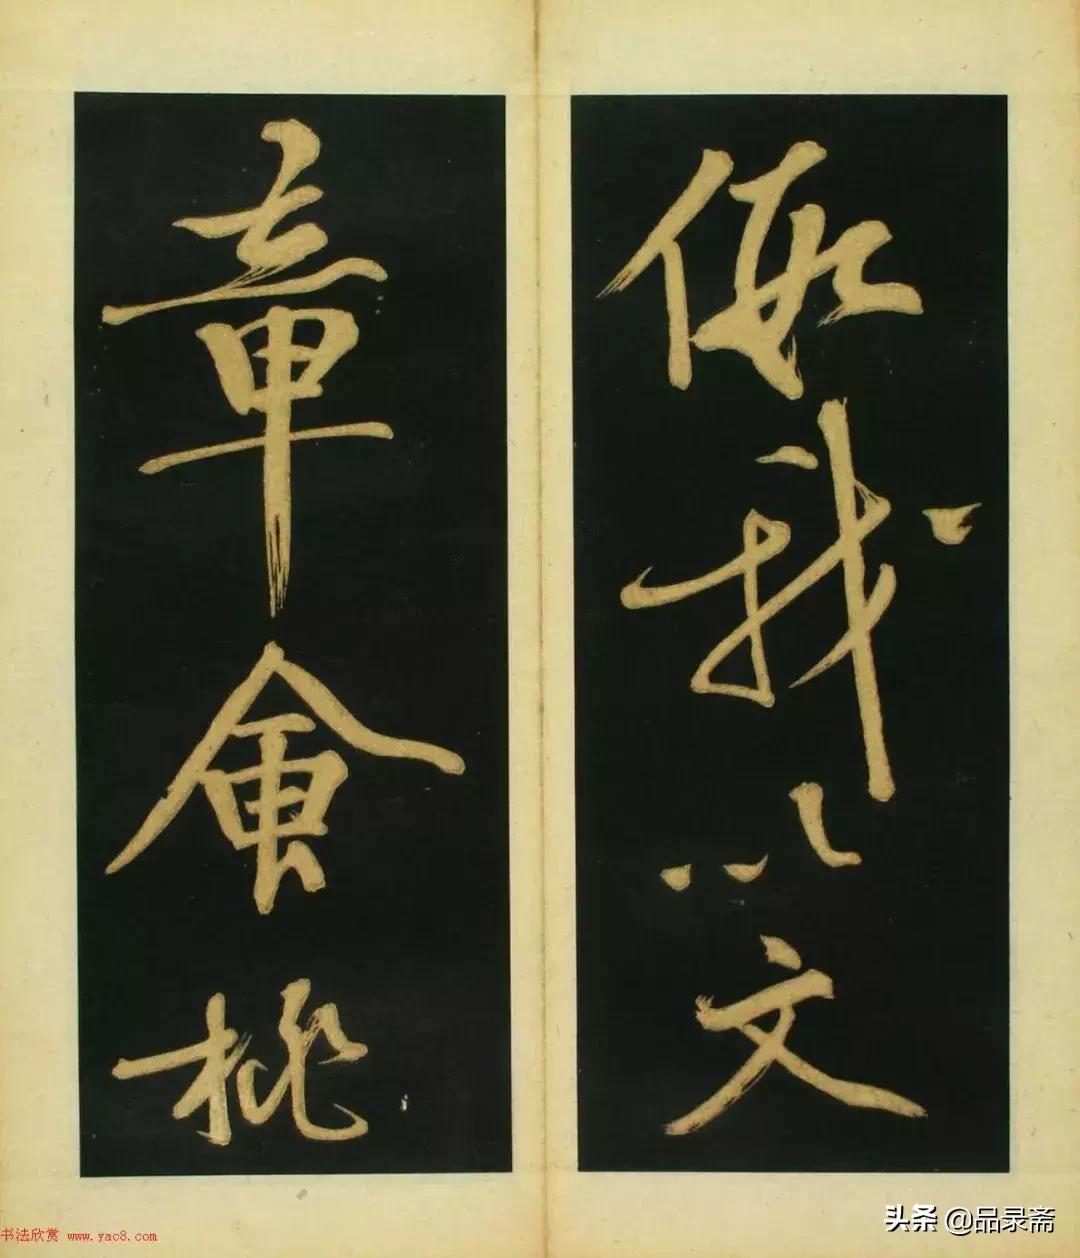 假我以文
章會桃
书法欣赏 www.yac8.com
头条 @品录斋